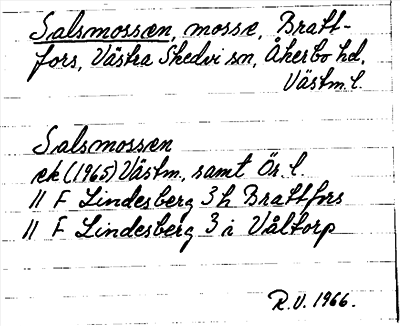 Salsmossen, mosse, Bratt-
fors, Västra Skedvi sn, Åkerbo hd,
Västm. l.
Salsmossen
ek (1965) Västm., samt Ör. l.
" F Lindesberg 3 h Brattfors
" F Lindesberg 3 i Våltorp
R.V. 1966.